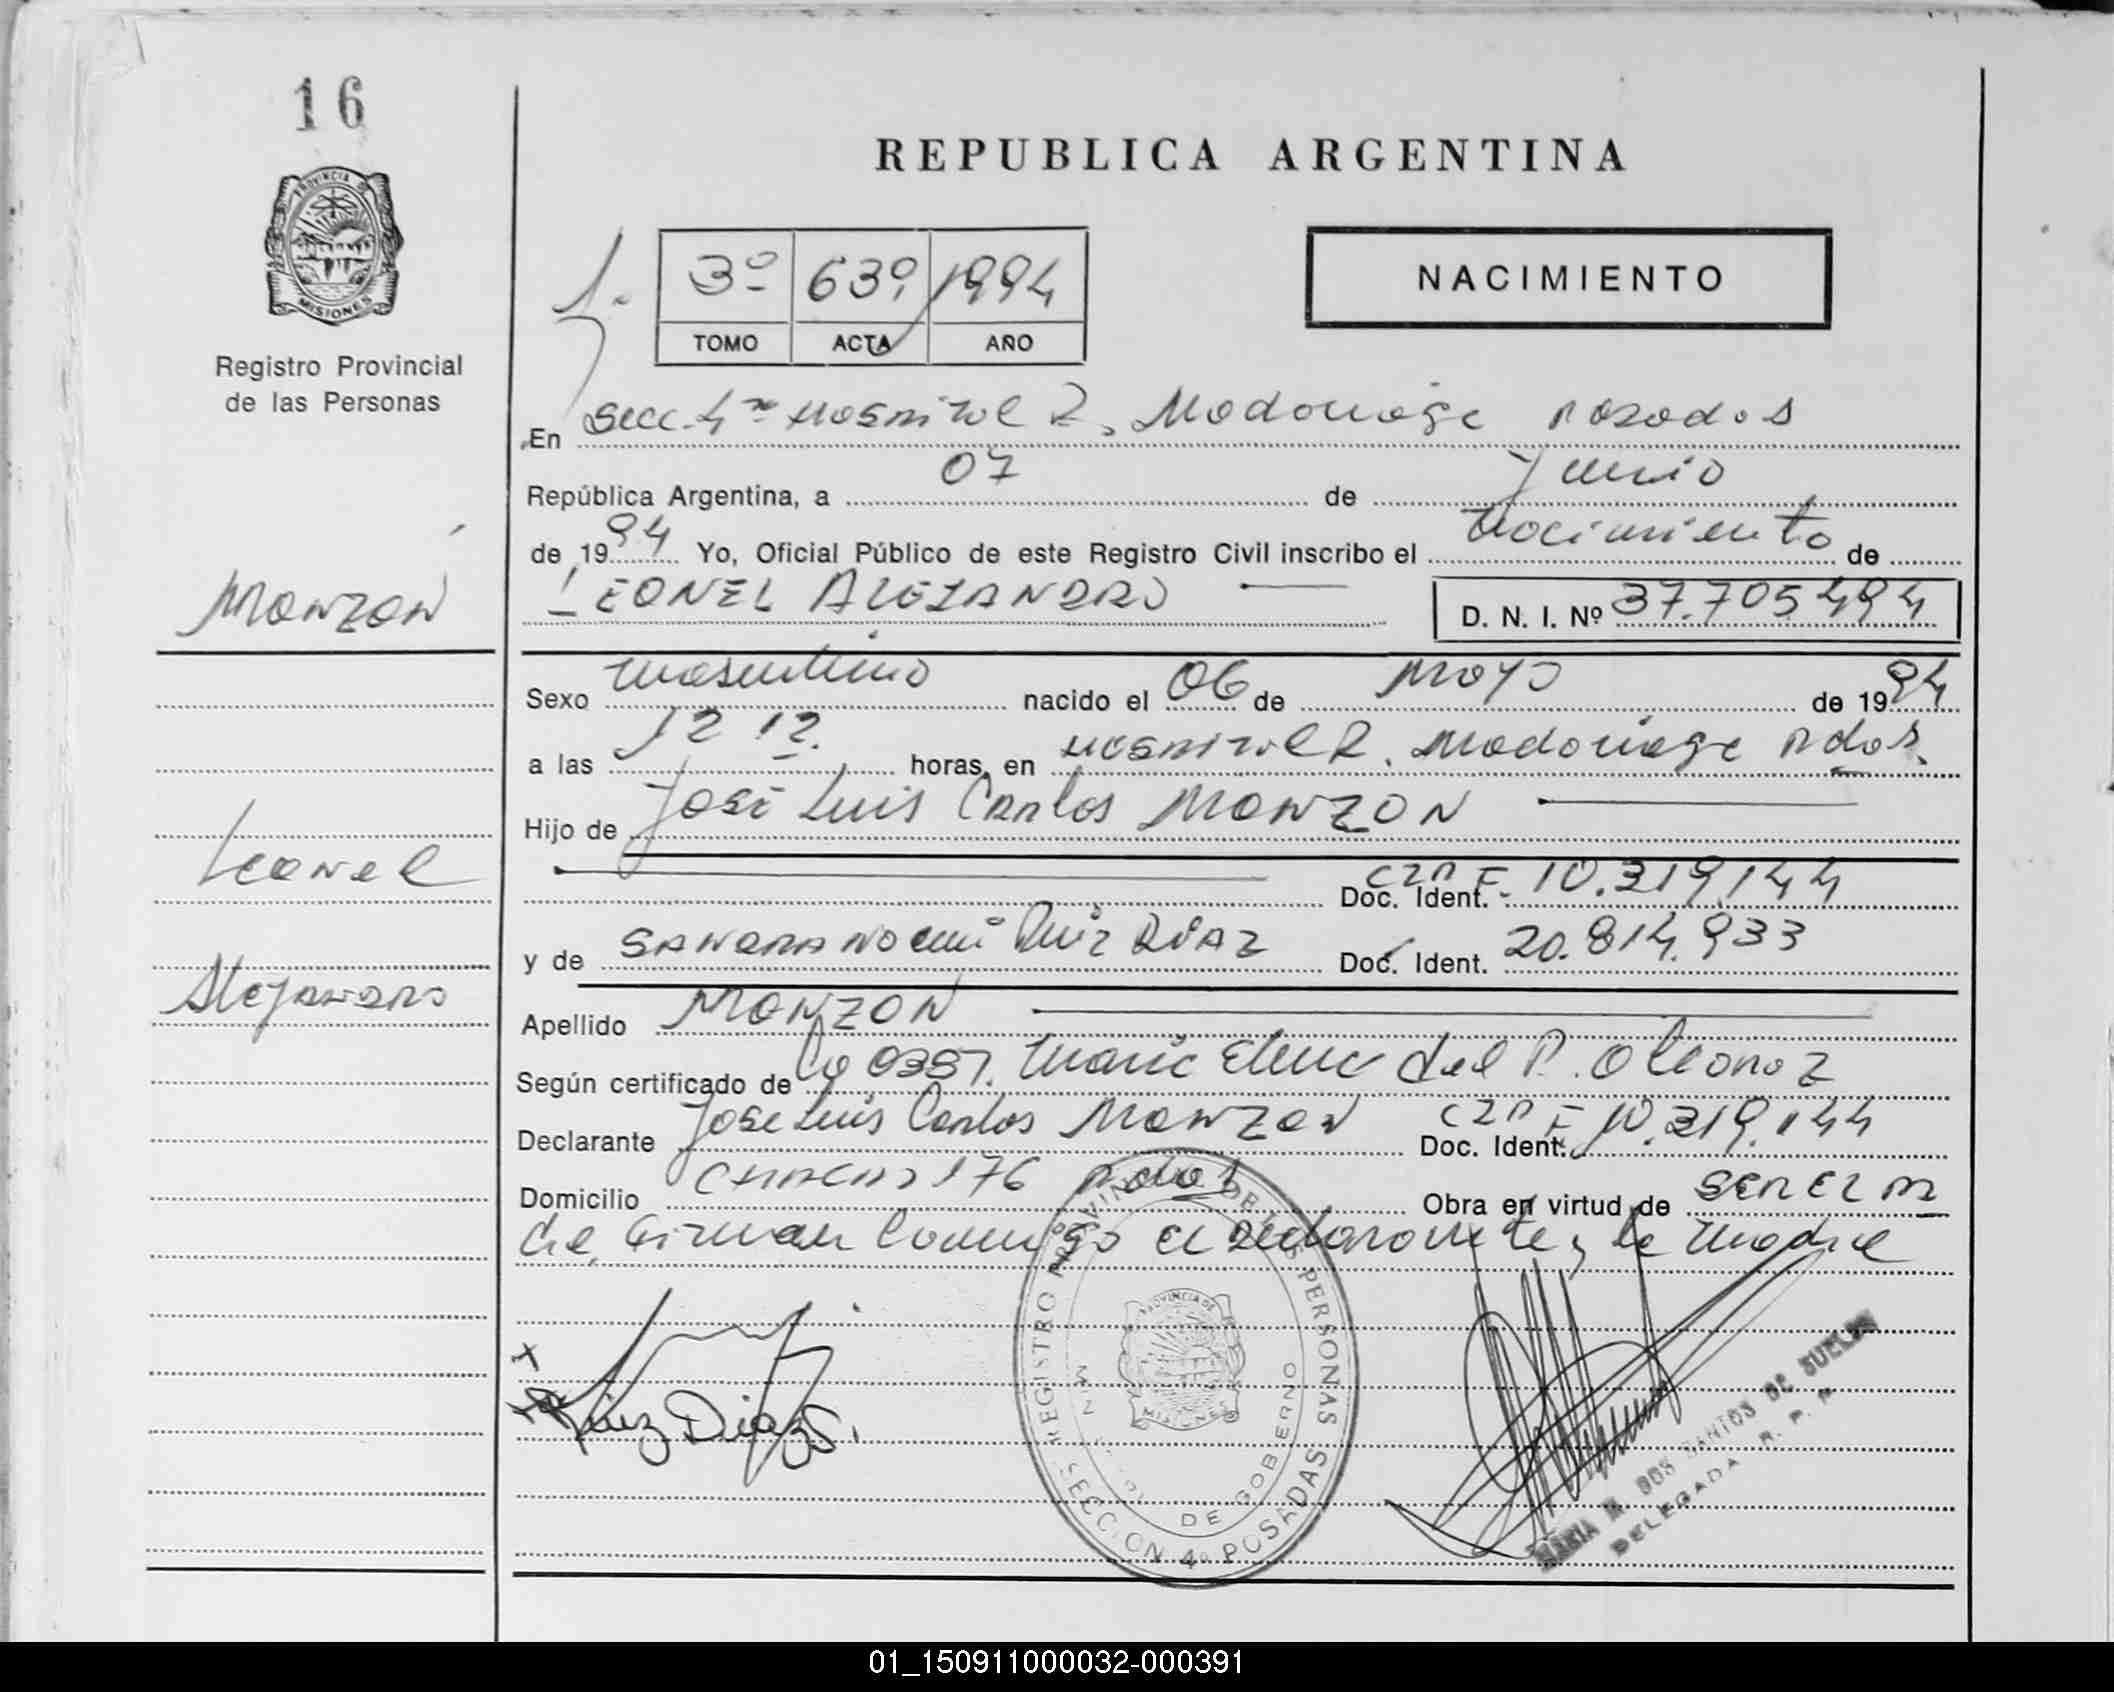 16
REPUBLICA ARGENTINA
PROVINCIA DE
MISIONES
Registro Provincial
de las Personas
3º 639 1994
TOMO ACTA AÑO
NACIMIENTO
En Secc. 4ª Hospital R. Madariaga Posadas
República Argentina, a 07 de Junio
de 1994 Yo, Oficial Público de este Registro Civil inscribo el Nacimiento de
LEONEL ALEJANDRO
D. N. I. Nº 37.705.494
MONZON
Leonel
Alejandro
Sexo masculino nacido el 06 de Mayo de 1994
a las 12 12. horas, en Hospital R. Madariaga Pdas.
Hijo de José Luis Carlos MONZON
Doc. Ident. 10.319.144
y de SANDRA NOEMI Ruiz DIAZ Doc. Ident. 20.814.933
Apellido MONZON
Según certificado de 0387. Maria Elena del P.
Declarante Jose Luis Carlos MONZON Doc. Ident. 10.319.144
Domicilio 176 Pdas Obra en virtud de ser el pa
dre, Firman conmigo el declarante y la madre
Ruiz Diaz S.
REGISTRO PROVINCIAL DE LAS PERSONAS
PROVINCIA DE
MISIONES
DE GOBERNO
SECCION 4ª POSADAS
MARIA M. DOS SANTOS DE
DELEGADA R. P. P.
01_150911000032-000391